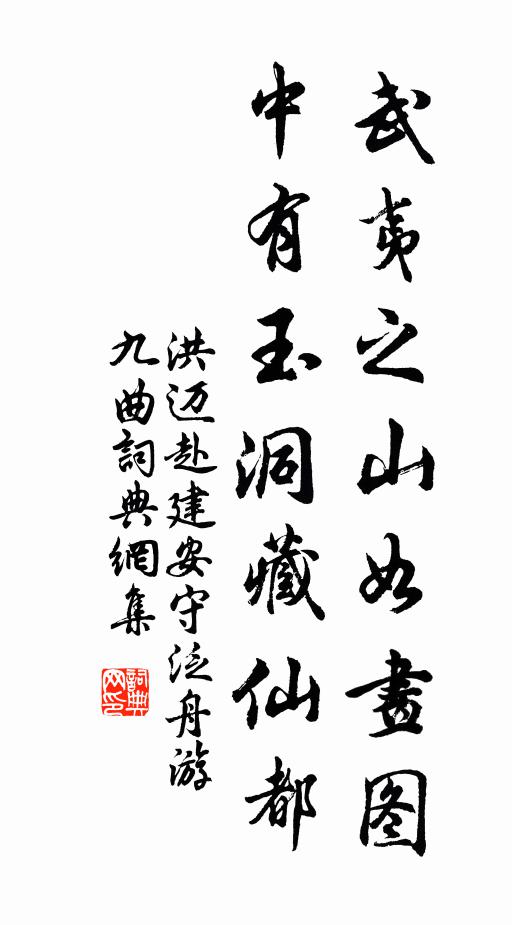 武夷之山如畫图
中有玉洞藏仙都
洪迈赴建安守泛舟游
九曲詞典網集
詞典
网印